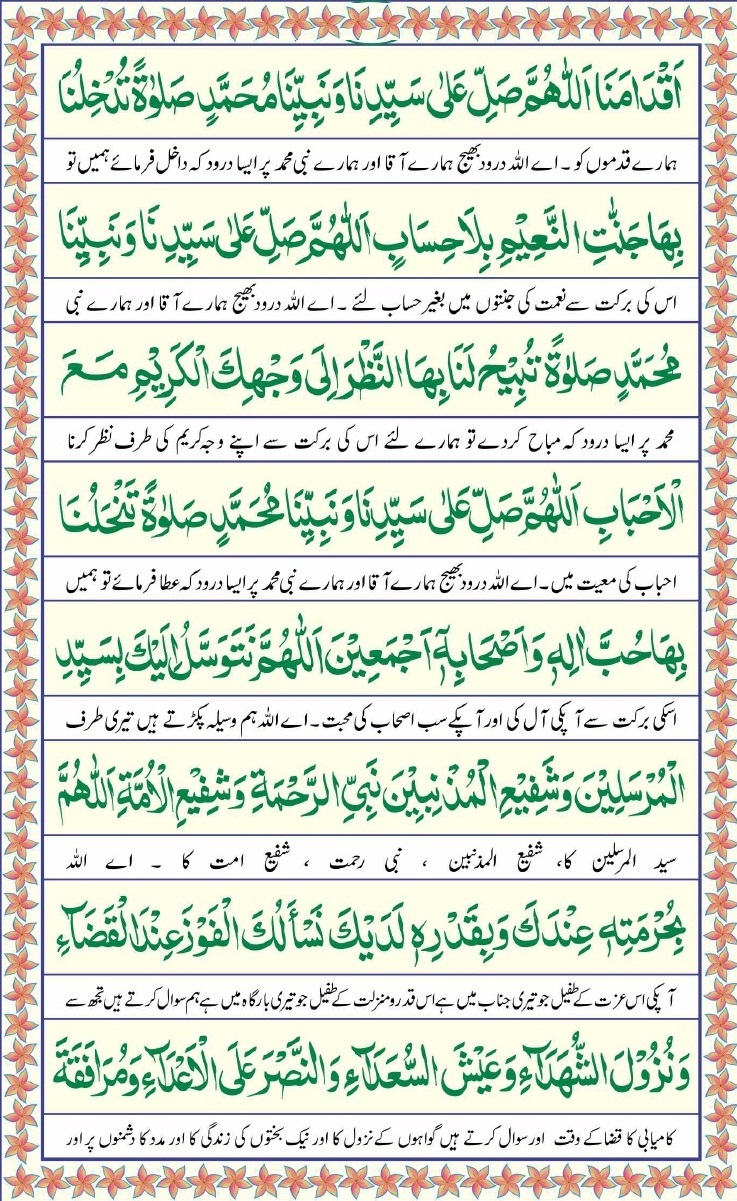 اَقْدَامَنَا اَللّٰهُمَّ صَلِّ عَلٰى سَيِّدِنَا وَنَبِيِّنَا مُحَمَّدٍ صَلٰوةً تُدْخِلُنَا
ہمارے قدموں کو ۔ اے اللہ درود بھیج ہمارے آقا اور ہمارے نبی محمد پر ایسا درود کہ داخل فرمائے ہمیں تو
بِهَا جَنّٰتِ النَّعِيْمِ بِلَا حِسَابٍ اَللّٰهُمَّ صَلِّ عَلٰى سَيِّدِنَا وَنَبِيِّنَا
اس کی برکت سے نعمت کی جنتوں میں بغیر حساب لئے ۔ اے اللہ درود بھیج ہمارے آقا اور ہمارے نبی
مُحَمَّدٍ صَلٰوةً تُبِيْحُ لَنَا بِهَا النَّظْرَ اِلٰى وَجْهِكَ الْكَرِيْمِ مَعَ
محمد پر ایسا درود کہ مباح کردے تو ہمارے لئے اس کی برکت سے اپنے وجہ کریم کی طرف نظر کرنا
الْاَحْبَابِ اَللّٰهُمَّ صَلِّ عَلٰى سَيِّدِنَا وَنَبِيِّنَا مُحَمَّدٍ صَلٰوةً تَنْحَلُنَا
احباب کی معیت میں۔ اے اللہ درود بھیج ہمارے آقا اور ہمارے نبی محمد پر ایسا درود کہ عطا فرمائے تو ہمیں
بِهَا حُبَّ اٰلِهٖ وَاَصْحَابِهٖٓ اَجْمَعِيْنَ اَللّٰهُمَّ نَتَوَسَّلُ اِلَيْكَ بِسَيِّدِ
اسکی برکت سے آپکی آل کی اور آپکے سب اصحاب کی محبت۔ اے اللہ ہم وسیلہ پکڑتے ہیں تیری طرف
الْمُرْسَلِيْنَ وَشَفِيْعِ الْمُذْنِبِيْنَ نَبِيِّ الرَّحْمَةِ وَشَفِيْعِ الْاُمَّةِ اَللّٰهُمَّ
سید المرسلین کا، شفیع المذنبین ، نبی رحمت ، شفیع امت کا ۔ اے اللہ
بِحُرْمَتِهٖ عِنْدَكَ وَبِقَدْرِهٖ لَدَيْكَ نَسْأَلُكَ الْفَوْزَ عِنْدَ الْقَضَآءِ
آپکی اس عزت کے طفیل جو تیری جناب میں ہے اس قدر ومنزلت کے طفیل جو تیری بارگاہ میں ہے ہم سوال کرتے ہیں تجھ سے
وَنُزُوْلَ الشُّهَدَآءِ وَعَيْشَ السُّعَدَآءِ وَالنَّصْرَ عَلَى الْاَعْدَآءِ وَمُرَافَقَةَ
کامیابی کا قضا کے وقت اور سوال کرتے ہیں گواہوں کے نزول کا اور نیک بختوں کی زندگی کا اور مدد کا دشمنوں پر اور